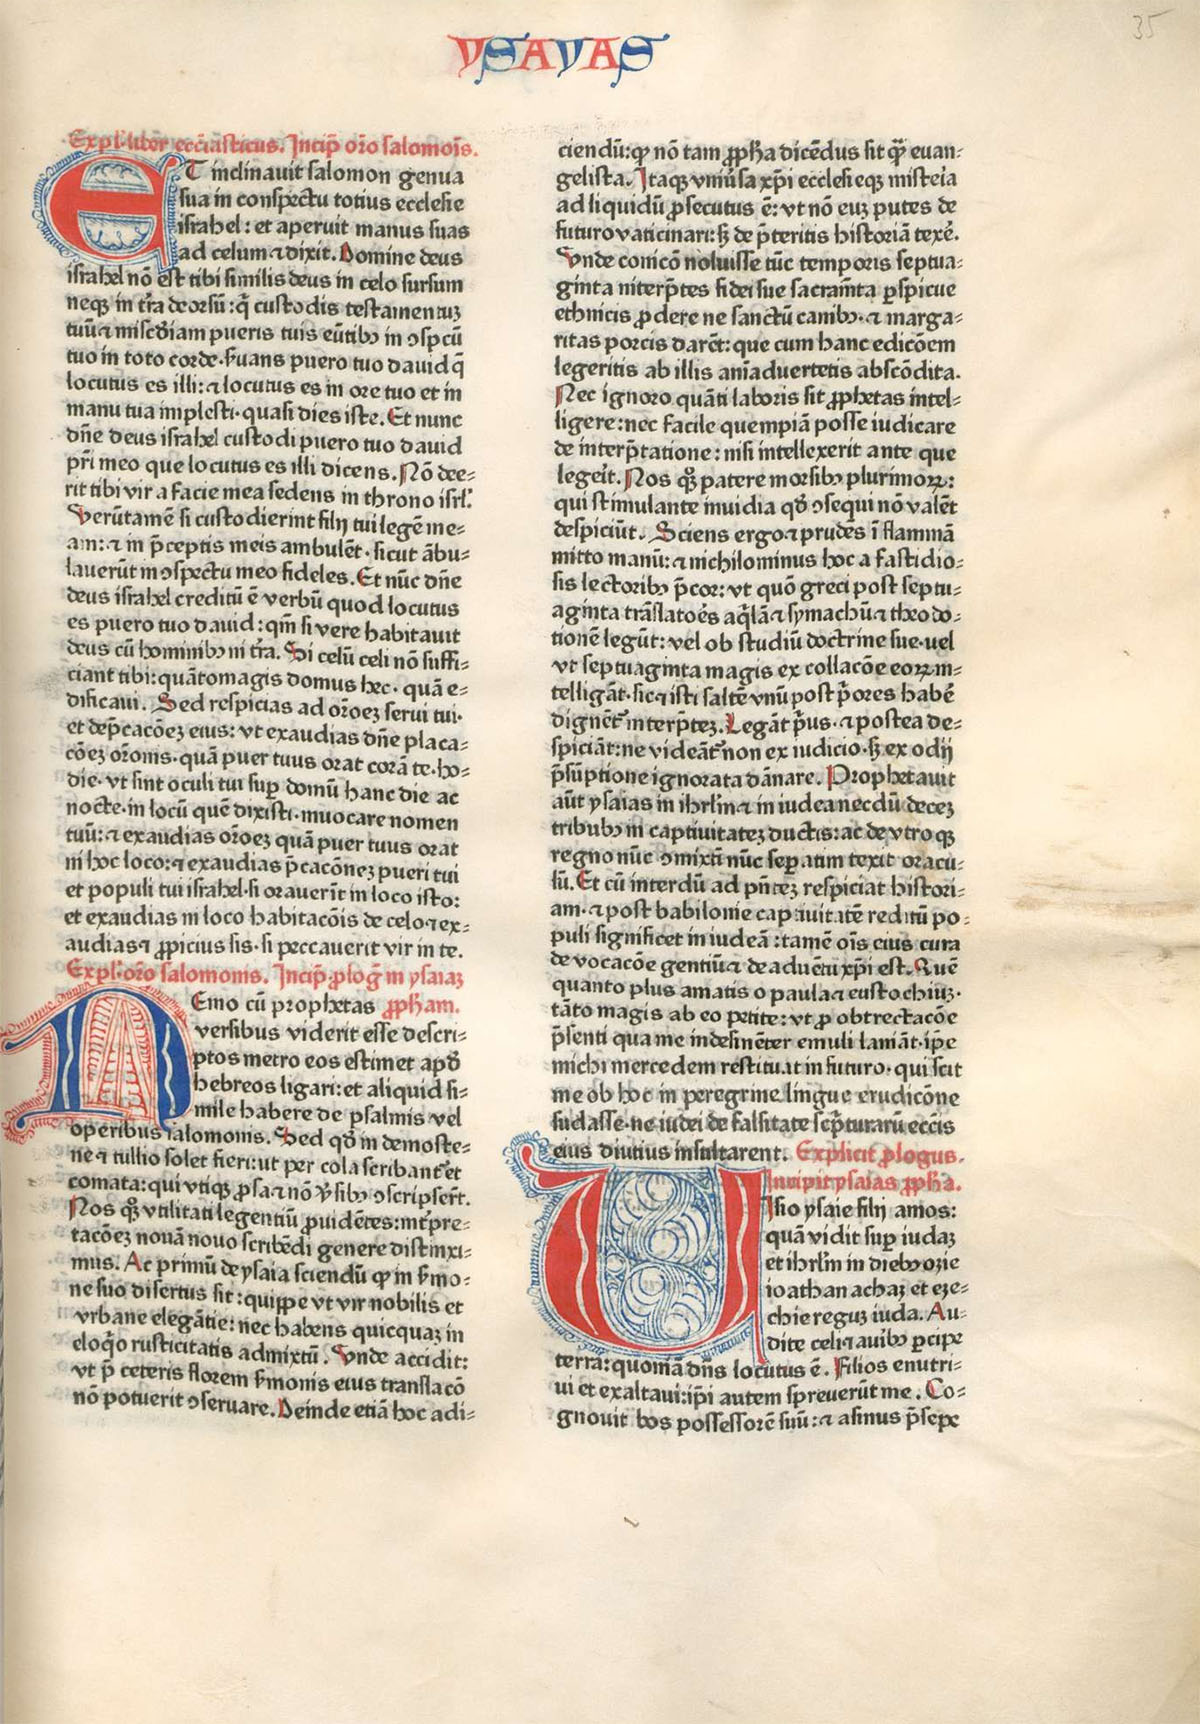 35
YSAYAS
Expl. liber ecc̄iasticus. Incip̄ or̄o salomōis.
ET inclinauit salomon genua
sua in conspectu totius ecclesie
israhel: et aperuit manus suas
ad celum ⁊ dixit. Domine deus
israhel nō est tibi similis deus in celo sursum
neqꝫ in tr̄a deorsū: q̄ custodis testamentuꝫ
tuū ⁊ misc̄diam pueris tuis eūtibꝰ in ↄspcū
tuo in toto corde. s̄uans puero tuo dauid q̄
locutus es illi: ⁊ locutus es in ore tuo et in
manu tua implesti. quasi dies iste. Et nunc
dn̄e deus israhel custodi puero tuo dauid
pr̄i meo que locutus es illi dicens. Nō dee⸗
rit tibi vir a facie mea sedens in throno isrl̓.
Uerūtamē si custodierint filij tui legē me⸗
am: ⁊ in p̄ceptis meis ambulēt. sicut ābu⸗
lauerūt in ↄspectu meo fideles. Et nūc dn̄e
deus israhel creditū ē verbū quod locutus
es puero tuo dauid: qm̄ si vere habitauit
deus cū hominibꝰ in tr̄a. Si celū celi nō suffi⸗
ciant tibi: quātomagis domus hec. quā e⸗
dificaui. Sed respicias ad or̄oeꝫ serui tui.
et dep̄cacōeꝫ eius: vt exaudias dn̄e placa⸗
cōeꝫ or̄onis. quā puer tuus orat corā te. ho⸗
die. vt sint oculi tui suꝑ domū hanc die ac
nocte. in locū quē dixisti. inuocare nomen
tuū: ⁊ exaudias or̄oeꝫ quā puer tuus orat
in hoc loco: ⁊ exaudias p̄cacōneꝫ pueri tui
et populi tui israhel. si orauerīt in loco isto:
et exaudias in loco habitacōis de celo ⁊ ex⸗
audias ⁊ ꝓpicius sis. si peccauerit vir in te.
Expl. or̄o salomonis. Incip̄. ꝓloḡ in ysaiaꝫ
NEmo cū prophetas ꝓpħam.
versibus viderit esse descri⸗
ptos metro eos estimet apd̓
hebreos ligari: et aliquid si⸗
mile habere de psalmis vel
operibus salomonis. Sed qd̓ in demoste⸗
ne ⁊ tullio solet fieri: ut per cola scribant̄ et
comata: qui vtiqꝫ ꝓsa ⁊ nō v̄sibꝰ ↄscripser̄t.
Nos qꝫ vtilitati legentiū ꝓuidētes: int̄pre⸗
tacōeꝫ nouā nouo scribēdi genere distinxi⸗
mus. Ac primū de ysaia sciendū ꝙ in s̄mo⸗
ne suo disertus sit: quippe vt vir nobilis et
vrbane elegātie: nec habens quicquaꝫ in
eloq̓o rusticitatis admixtū. Unde accidit:
vt p̄ ceteris florem s̄monis eius translacō
nō potuerit ↄseruare. Deinde etiā hoc adi⸗
ciendū: ꝙ nō tam ꝓpħa dicēdus sit q̄ euan⸗
gelista. Itaqꝫ vniūsa xp̄i ecclesieqꝫ misteīa
ad liquidū ꝓsecutus ē: vt nō euꝫ putes de
futuro vaticinari: sꝫ de p̄teritis historiā texē.
Unde conicō noluisse tūc temporis septua⸗
ginta niterp̄tes fidei sue sacram̄ta ꝑspicue
ethnicis ꝓdere ne sanctū canibꝰ. ⁊ marga⸗
ritas porcis darēt: que cum hanc edicōem
legeritis ab illis aniāduertetis abscōdita.
Nec ignoro quāti laboris sit ꝓphetas intel⸗
ligere: nec facile quempiā posse iudicare
de interp̄tatione: nisi intellexerit ante que
legerīt. Nos qꝫ patere morsibꝰ plurimoꝝ:
qui stimulante inuidia qd̓ ↄsequi nō valēt
despiciūt. Sciens ergo ⁊ prudēs ī flammā
mitto manū: ⁊ nichilominus hoc a fastidio⸗
sis lectoribꝰ p̄cor: vt quō greci post septu⸗
aginta trāslatoēs aq̓lā ⁊ symachū ⁊ theodo⸗
tionē legūt: vel ob studiū doctrine sue. vel
vt septuaginta magis ex collacōe eoꝝ in⸗
telligāt. sic ⁊ isti saltē vnū post p̓ores habē
dignēt̄ interp̄teꝫ. Legāt p̓us. ⁊ postea de⸗
spiciāt: ne videāt̄ non ex iudicio. sꝫ ex odij
p̄sūptione ignorata dānare. Prophetauit
aūt ysaias in ihrlm̄ ⁊ in iudea necdū deceꝫ
tribubꝰ in captiuitateꝫ ductis: ac de vtroqꝫ
regno nūc ↄmixtī nūc seꝑatim texit oracu⸗
lū. Et cū interdū ad p̄nteꝫ respiciat histori⸗
am. ⁊ post babilonie captiuitatē reditū po⸗
puli significet in iudeā: tamē oīs eius cura
de vocacōe gentiū ⁊ de aduētu xp̄i est. Quē
quanto plus amatis o paula ⁊ eustochiuꝫ.
tāto magis ab eo petite: vt ꝓ obtrectacōe
p̄senti qua me indesinēter emuli laniāt. ip̄e
michi mercedem restituat in futuro. qui scit
me ob hoc in peregrine lingue erudicōne
sudasse. ne iudei de falsitate scp̄turarū ecc̄is
eius diutius insultarent. Explicit ꝓlogus.
Incipit ysaias ꝓpħa.
UIsio ysaie filij amos:
quā vidit suꝑ iudaꝫ
et ihrlm̄ in diebꝰ ozie
ioathan achaꝫ et eze⸗
chie reguꝫ iuda. Au⸗
dite celi ⁊ auibꝰ ꝑcipe
terra: quoniā dn̄s locutus ē. Filios enutri⸗
ui et exaltaui: ip̄i autem spreuerūt me. Co⸗
gnouit bos possessorē suū: ⁊ asinus p̄sepe